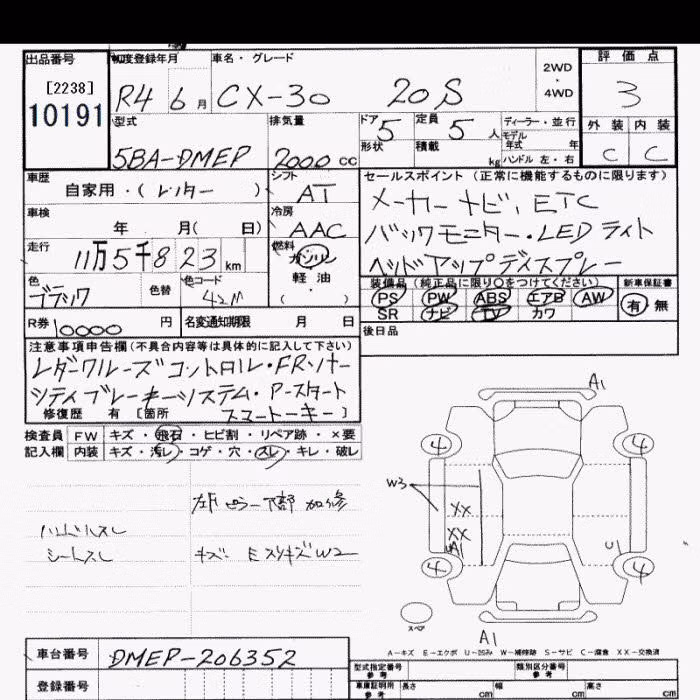 出品番号 初度登録年月 車名・グレード 評価点
[2238]
10191
R4 6月 CX-30 20S 2WD・4WD 3
型式 排気量 ドア 形状 定員 積載 ディーラー・並行 外装 内装
5BA-DMEP 2000cc 5 5人 kg モデル年式 年 ハンドル 左・右 C C
車歴 シフト セールスポイント(正常に機能するものに限ります)
自家用・(レンター) AT メーカーナビ、ETC
車検 年 月(日) 冷房 AAC バックモニター・LEDライト
走行 11万5千823km 燃料 ガソリン 軽油 (・) ヘッドアップディスプレー
色 ブラック 色替 色コード 42M 装備品(純正品に限り○をつけてください) 新車保証書
PS PW ABS エアB AW 有 無
SR ナビ TV カワ
R券 10000円 名変通知期限 月 日 後日品
注意事項申告欄(不具合内容等は具体的に記入して下さい)
レダークルーズコントロル・FRソナー
シティブレーキシステム・P-スタート
修復歴 有[箇所 スマートーキー]
検査員 FW キズ・飛石・ヒビ割・リペア跡・×要
記入欄 内装 キズ・汚レ・コゲ・穴・スレ・キレ・破レ
下部 加修
ハンドルスレ
シートスレ キズ E スリキズW2
A1
4 4
W3
XX
XX
A1 U1
4 4
スペア
A1
A-キズ E-エクボ U-凹み W-補修跡 S-サビ C-腐食 XX-交換済
車台番号 DMEP-206352 型式指定番号 参考 類別区分番号 参考
登録番号 車庫証明用 参考 長さ cm 幅 cm 高さ cm